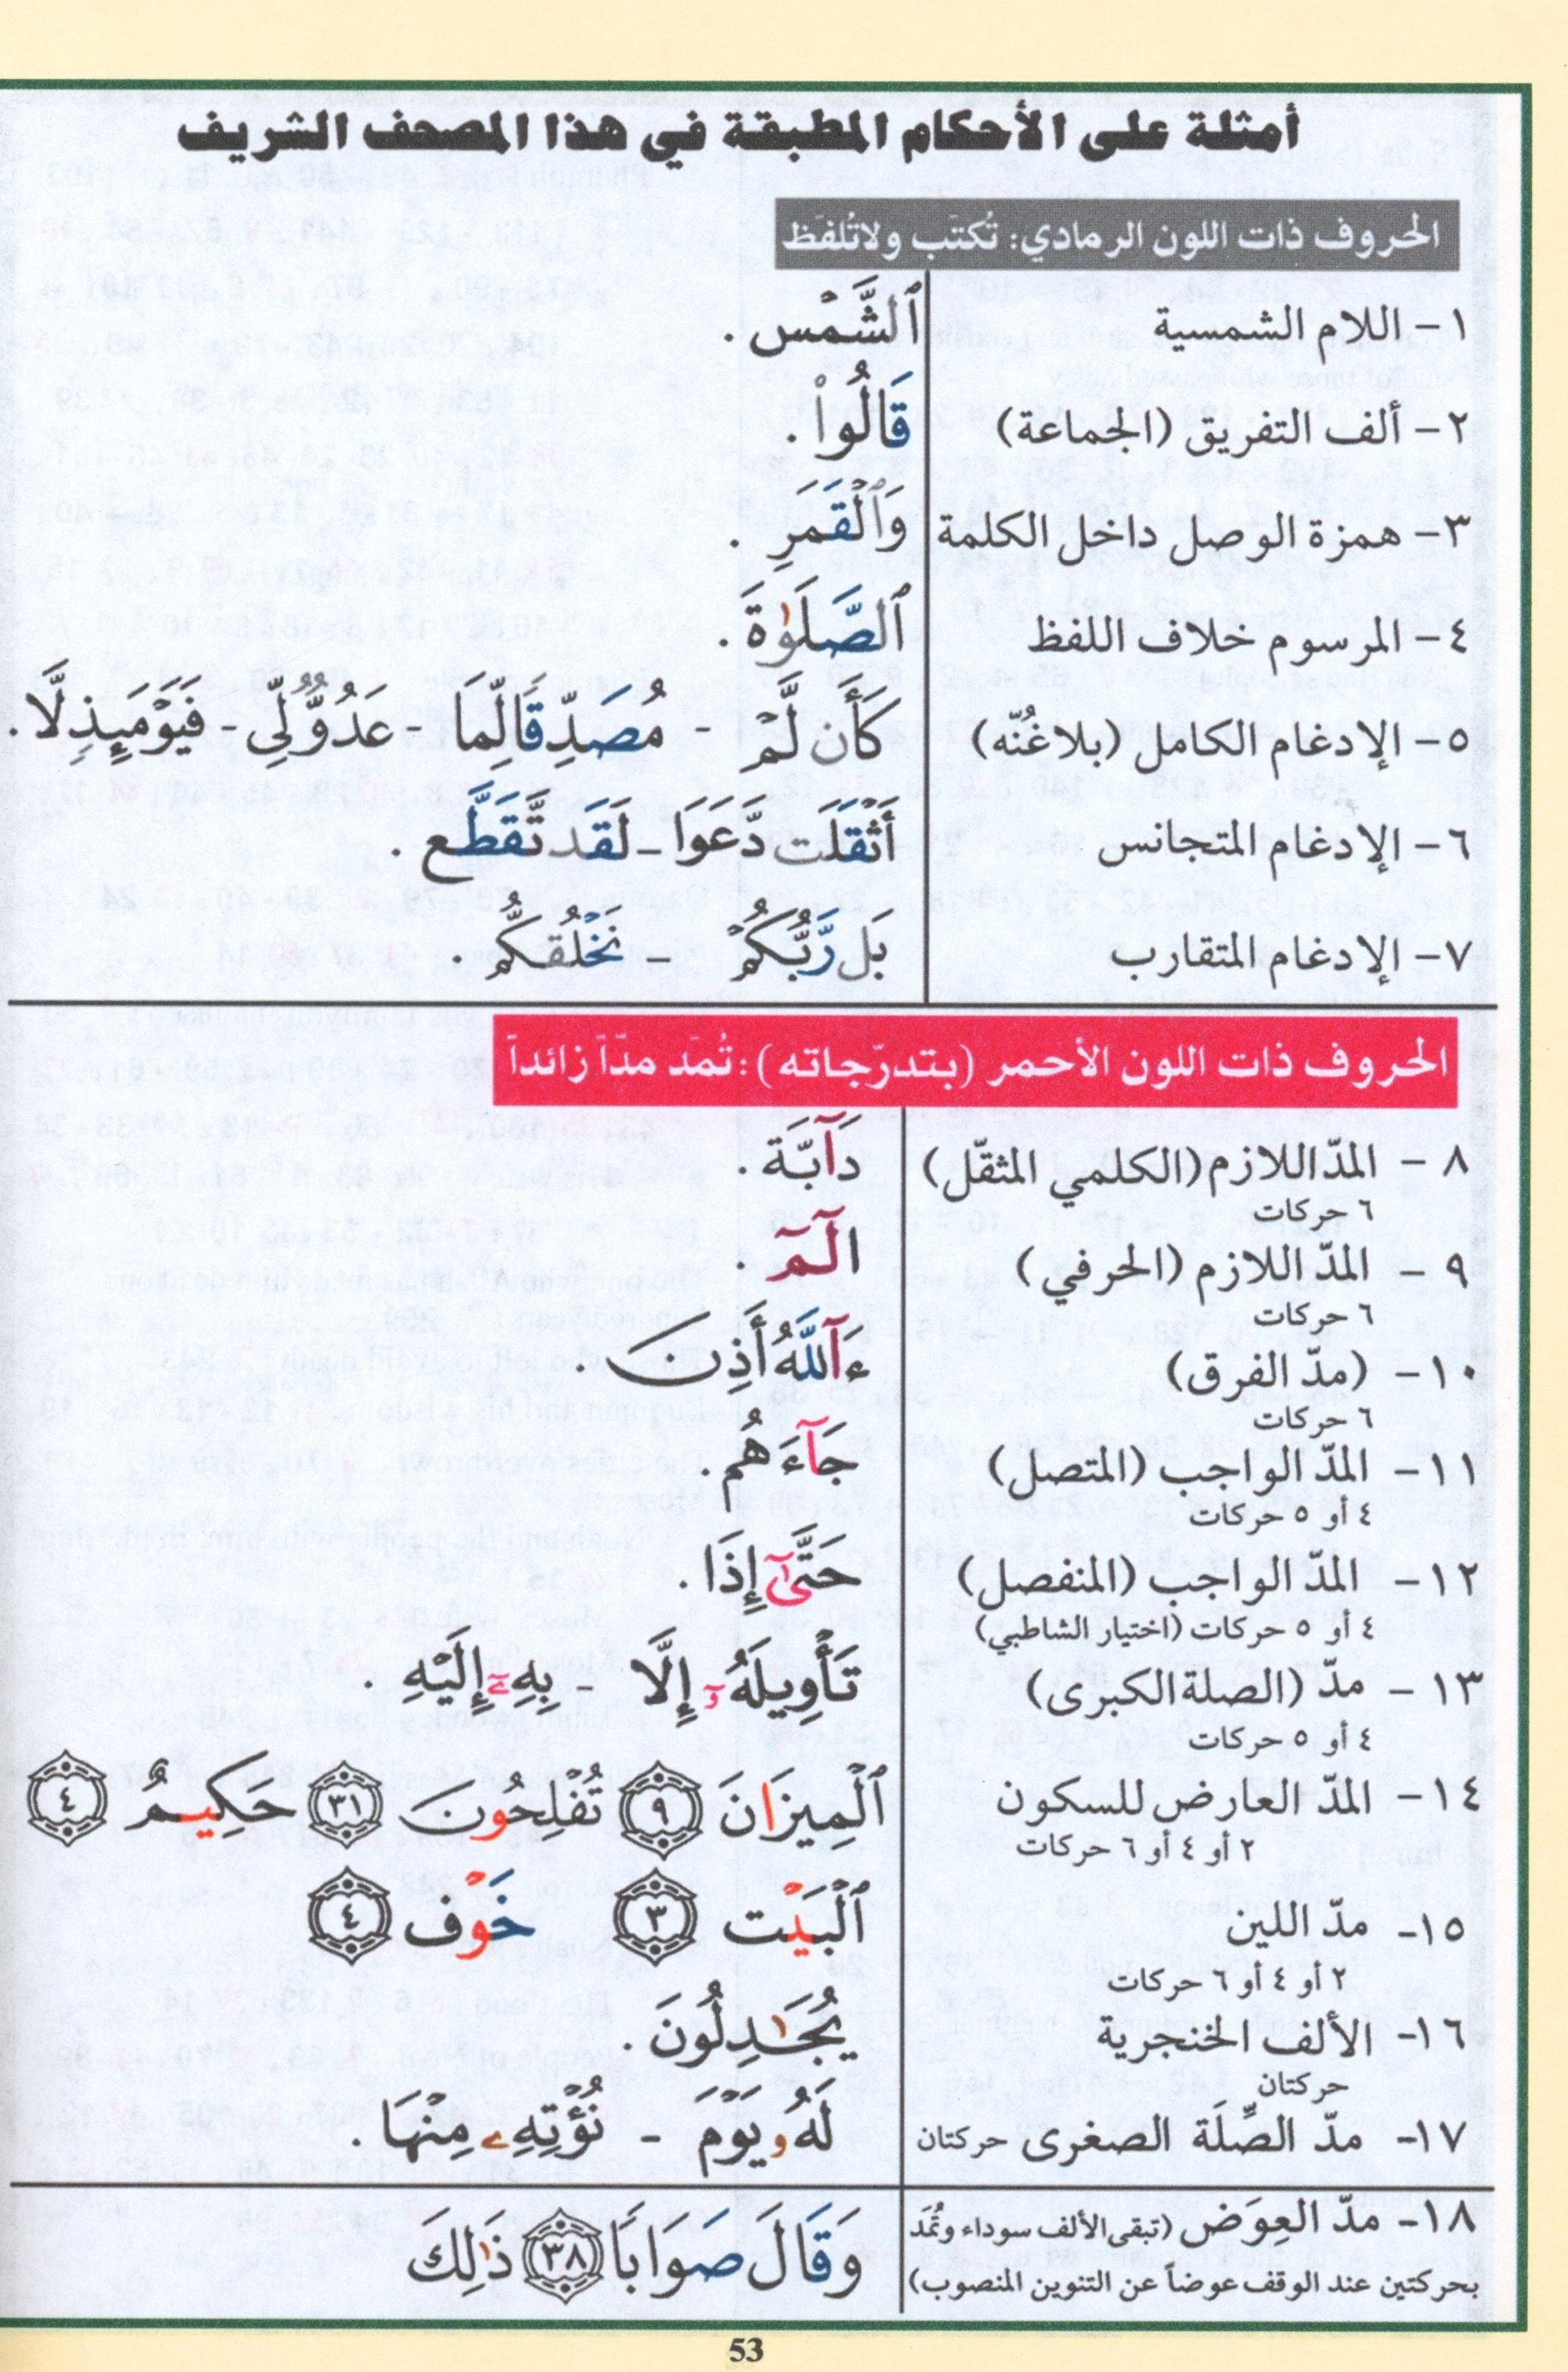 أمثلة على الأحكام المطبقة في هذا المصحف الشريف
الحروف ذات اللون الرمادي: تُكتَب ولاتُلفَظ
١- اللام الشمسية ٱلشَّمْس .
٢- ألف التفريق (الجماعة) قَالُوا۟ .
٣- همزة الوصل داخل الكلمة وَٱلْقَمَرِ .
٤- المرسوم خلاف اللفظ ٱلصَّلَوٰةَ .
٥- الإدغام الكامل (بلاغُنّه) كَأَن لَّمْ - مُصَدِّقًا لِّمَا - عَدُوٌّ لِّى - فَيَوْمَئِذٍ لَّا .
٦- الإدغام المتجانس أَثْقَلَت دَّعَوَا - لَقَد تَّقَطَّع .
٧- الإدغام المتقارب بَل رَّبُّكُمْ - نَخْلُقكُّم .
الحروف ذات اللون الأحمر (بتدرّجاته): تُمَد مدّاً زائداً
٨ - المدّ اللازم (الكلمي المثقّل) دَآبَّة .
٦ حركات
٩ - المدّ اللازم (الحرفي) الٓمٓ .
٦ حركات
١٠- (مدّ الفرق) ءَآللَّهُ أَذِنَ .
٦ حركات
١١- المدّ الواجب (المتصل) جَآءَهُم .
٤ أو ٥ حركات
١٢- المدّ الواجب (المنفصل) حَتَّىٰٓ إِذَا .
٤ أو ٥ حركات (اختيار الشاطبي)
١٣- مدّ (الصلة الكبرى) تَأْوِيلَهُۥٓ إِلَّا - بِهِۦٓ إِلَيْهِ .
٤ أو ٥ حركات
١٤- المدّ العارض للسكون ٱلْمِيزَانَ ٩ تُفْلِحُونَ ٣١ حَكِيمٌ ٤
٢ أو ٤ أو ٦ حركات
١٥- مدّ اللين ٱلْبَيْت ٣ خَوْف ٤
٢ أو ٤ أو ٦ حركات
١٦- الألف الخنجرية يُجَٰدِلُونَ .
حركتان
١٧- مدّ الصِّلَة الصغرى حركتان لَهُۥ يَوْمَ - نُؤْتِهِۦ مِنْهَا .
١٨- مدّ العِوَض (تبقى الألف سوداء وتُمَد وَقَالَ صَوَابًا ٣٨ ذَٰلِكَ
بحركتين عند الوقف عوضاً عن التنوين المنصوب)
53